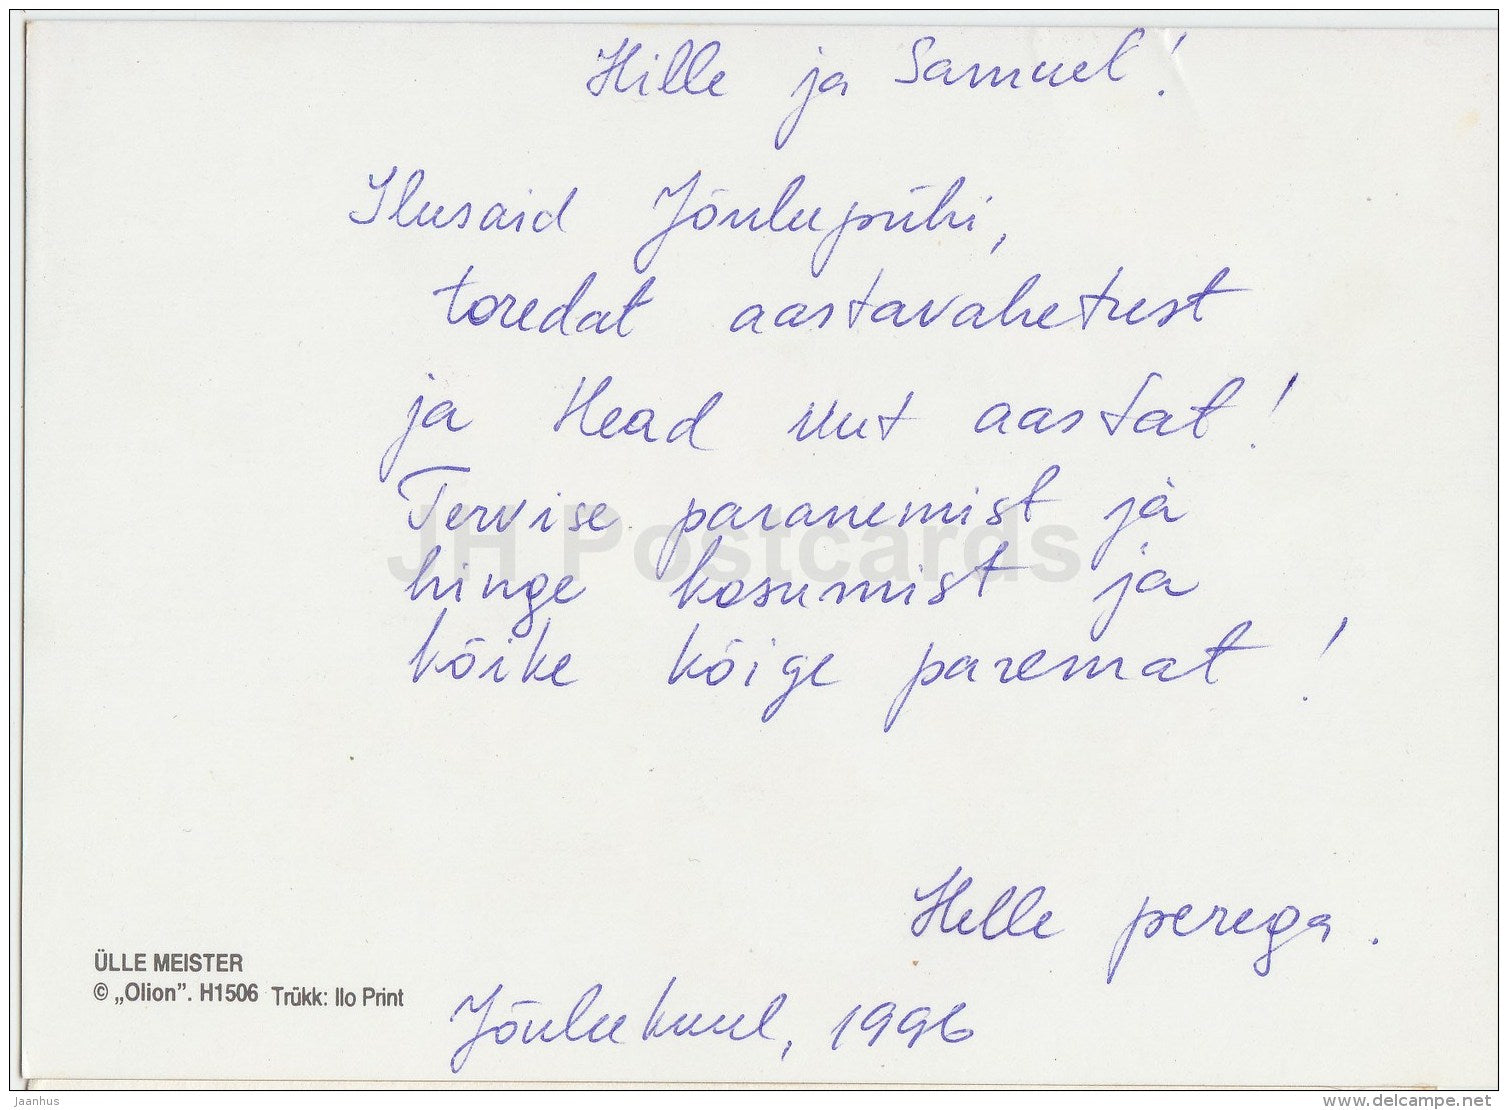 Hille ja Samuel!
Ilusaid Jõulupühi,
toredat aastavahetust
ja Head uut aastat!
Tervise paranemist ja
hinge kosumist ja
kõike kõige paremat!
Helle perega.
Jõulukuul, 1996
ÜLLE MEISTER
© „Olion". H1506 Trükk: Ilo Print
JH Postcards
Jaanhus
www.delcampe.net